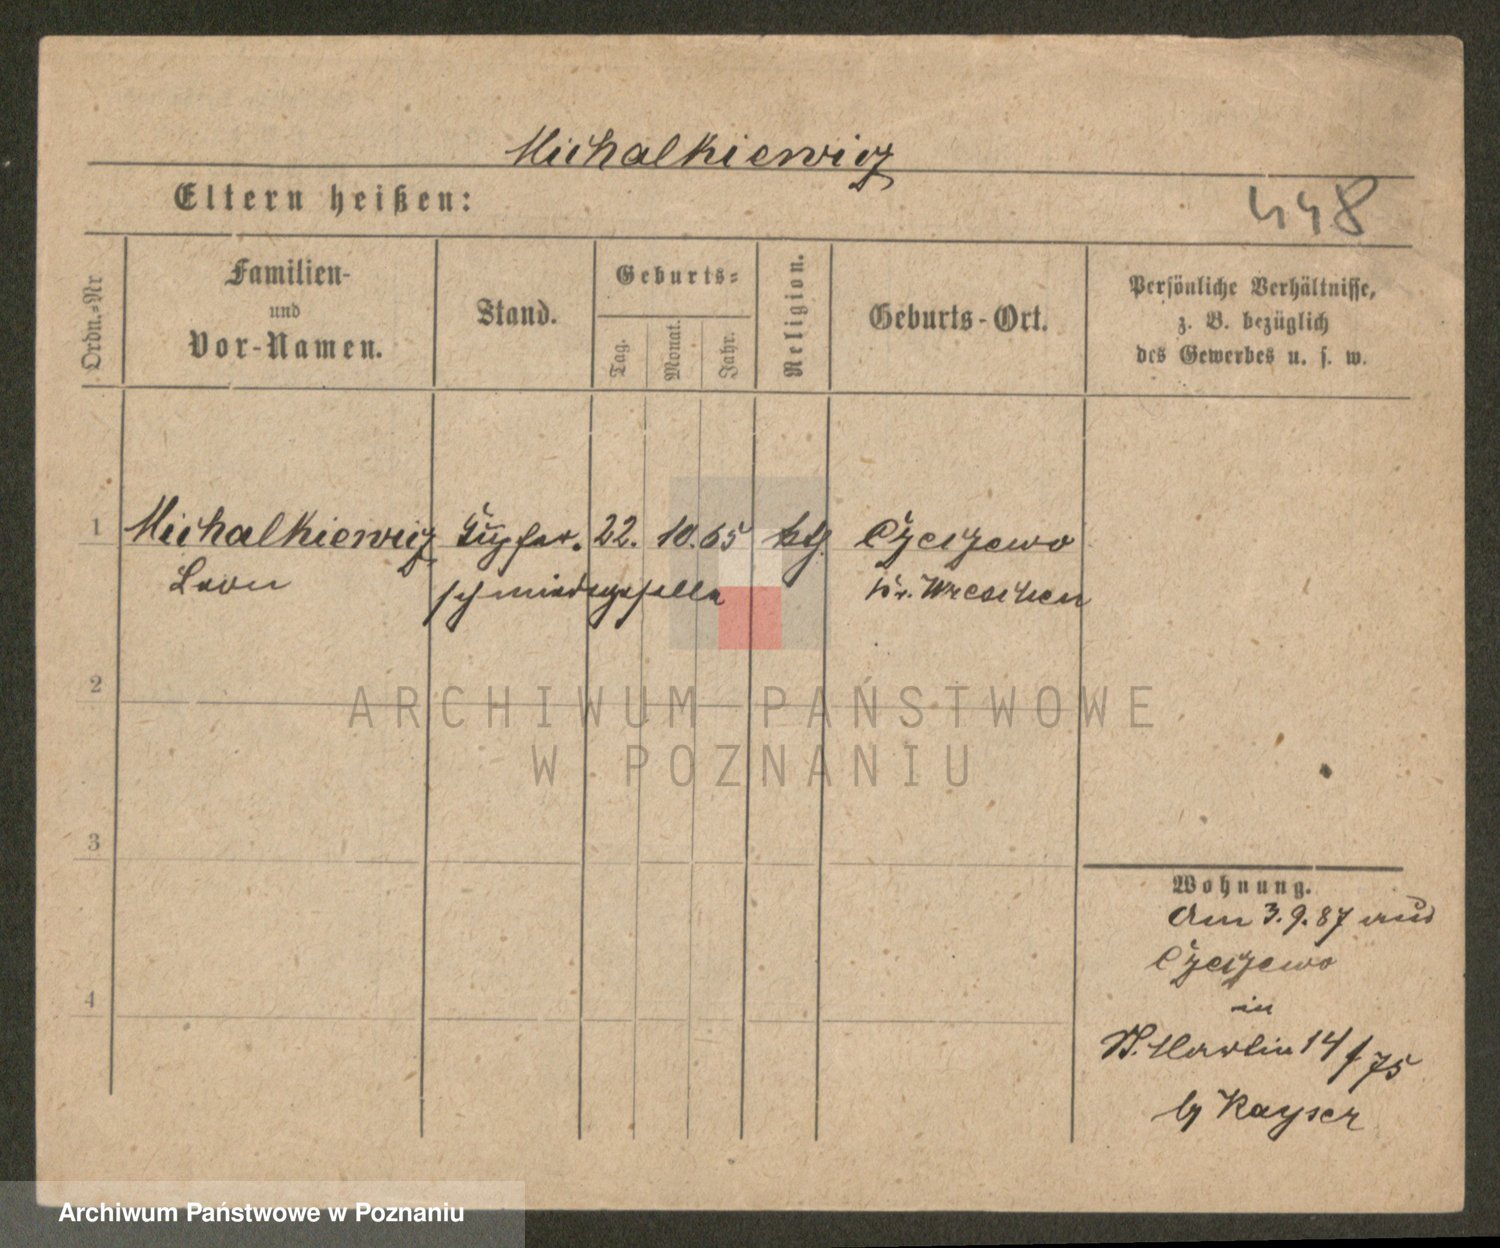 Michalkiewicz
Eltern heißen:
448
Ordn.-Nr
Familien-
und
Vor-Namen.
Stand.
Geburts-
Tag.
Monat.
Jahr.
Religion.
Geburts-Ort.
Persönliche Verhältnisse,
z. B. bezüglich
des Gewerbes u. s. w.
1
Michalkiewicz
Kupfer.
22.
10.
65
kth.
Czeszewo
Leon
schmiedegeselle
Kr. Wreschen
2
ARCHIWUM PAŃSTWOWE
W POZNANIU
3
4
Wohnung.
Am 3.9.87 aus
Czeszewo
in
St. Martin 14/75
by Kayser
Archiwum Państwowe w Poznaniu